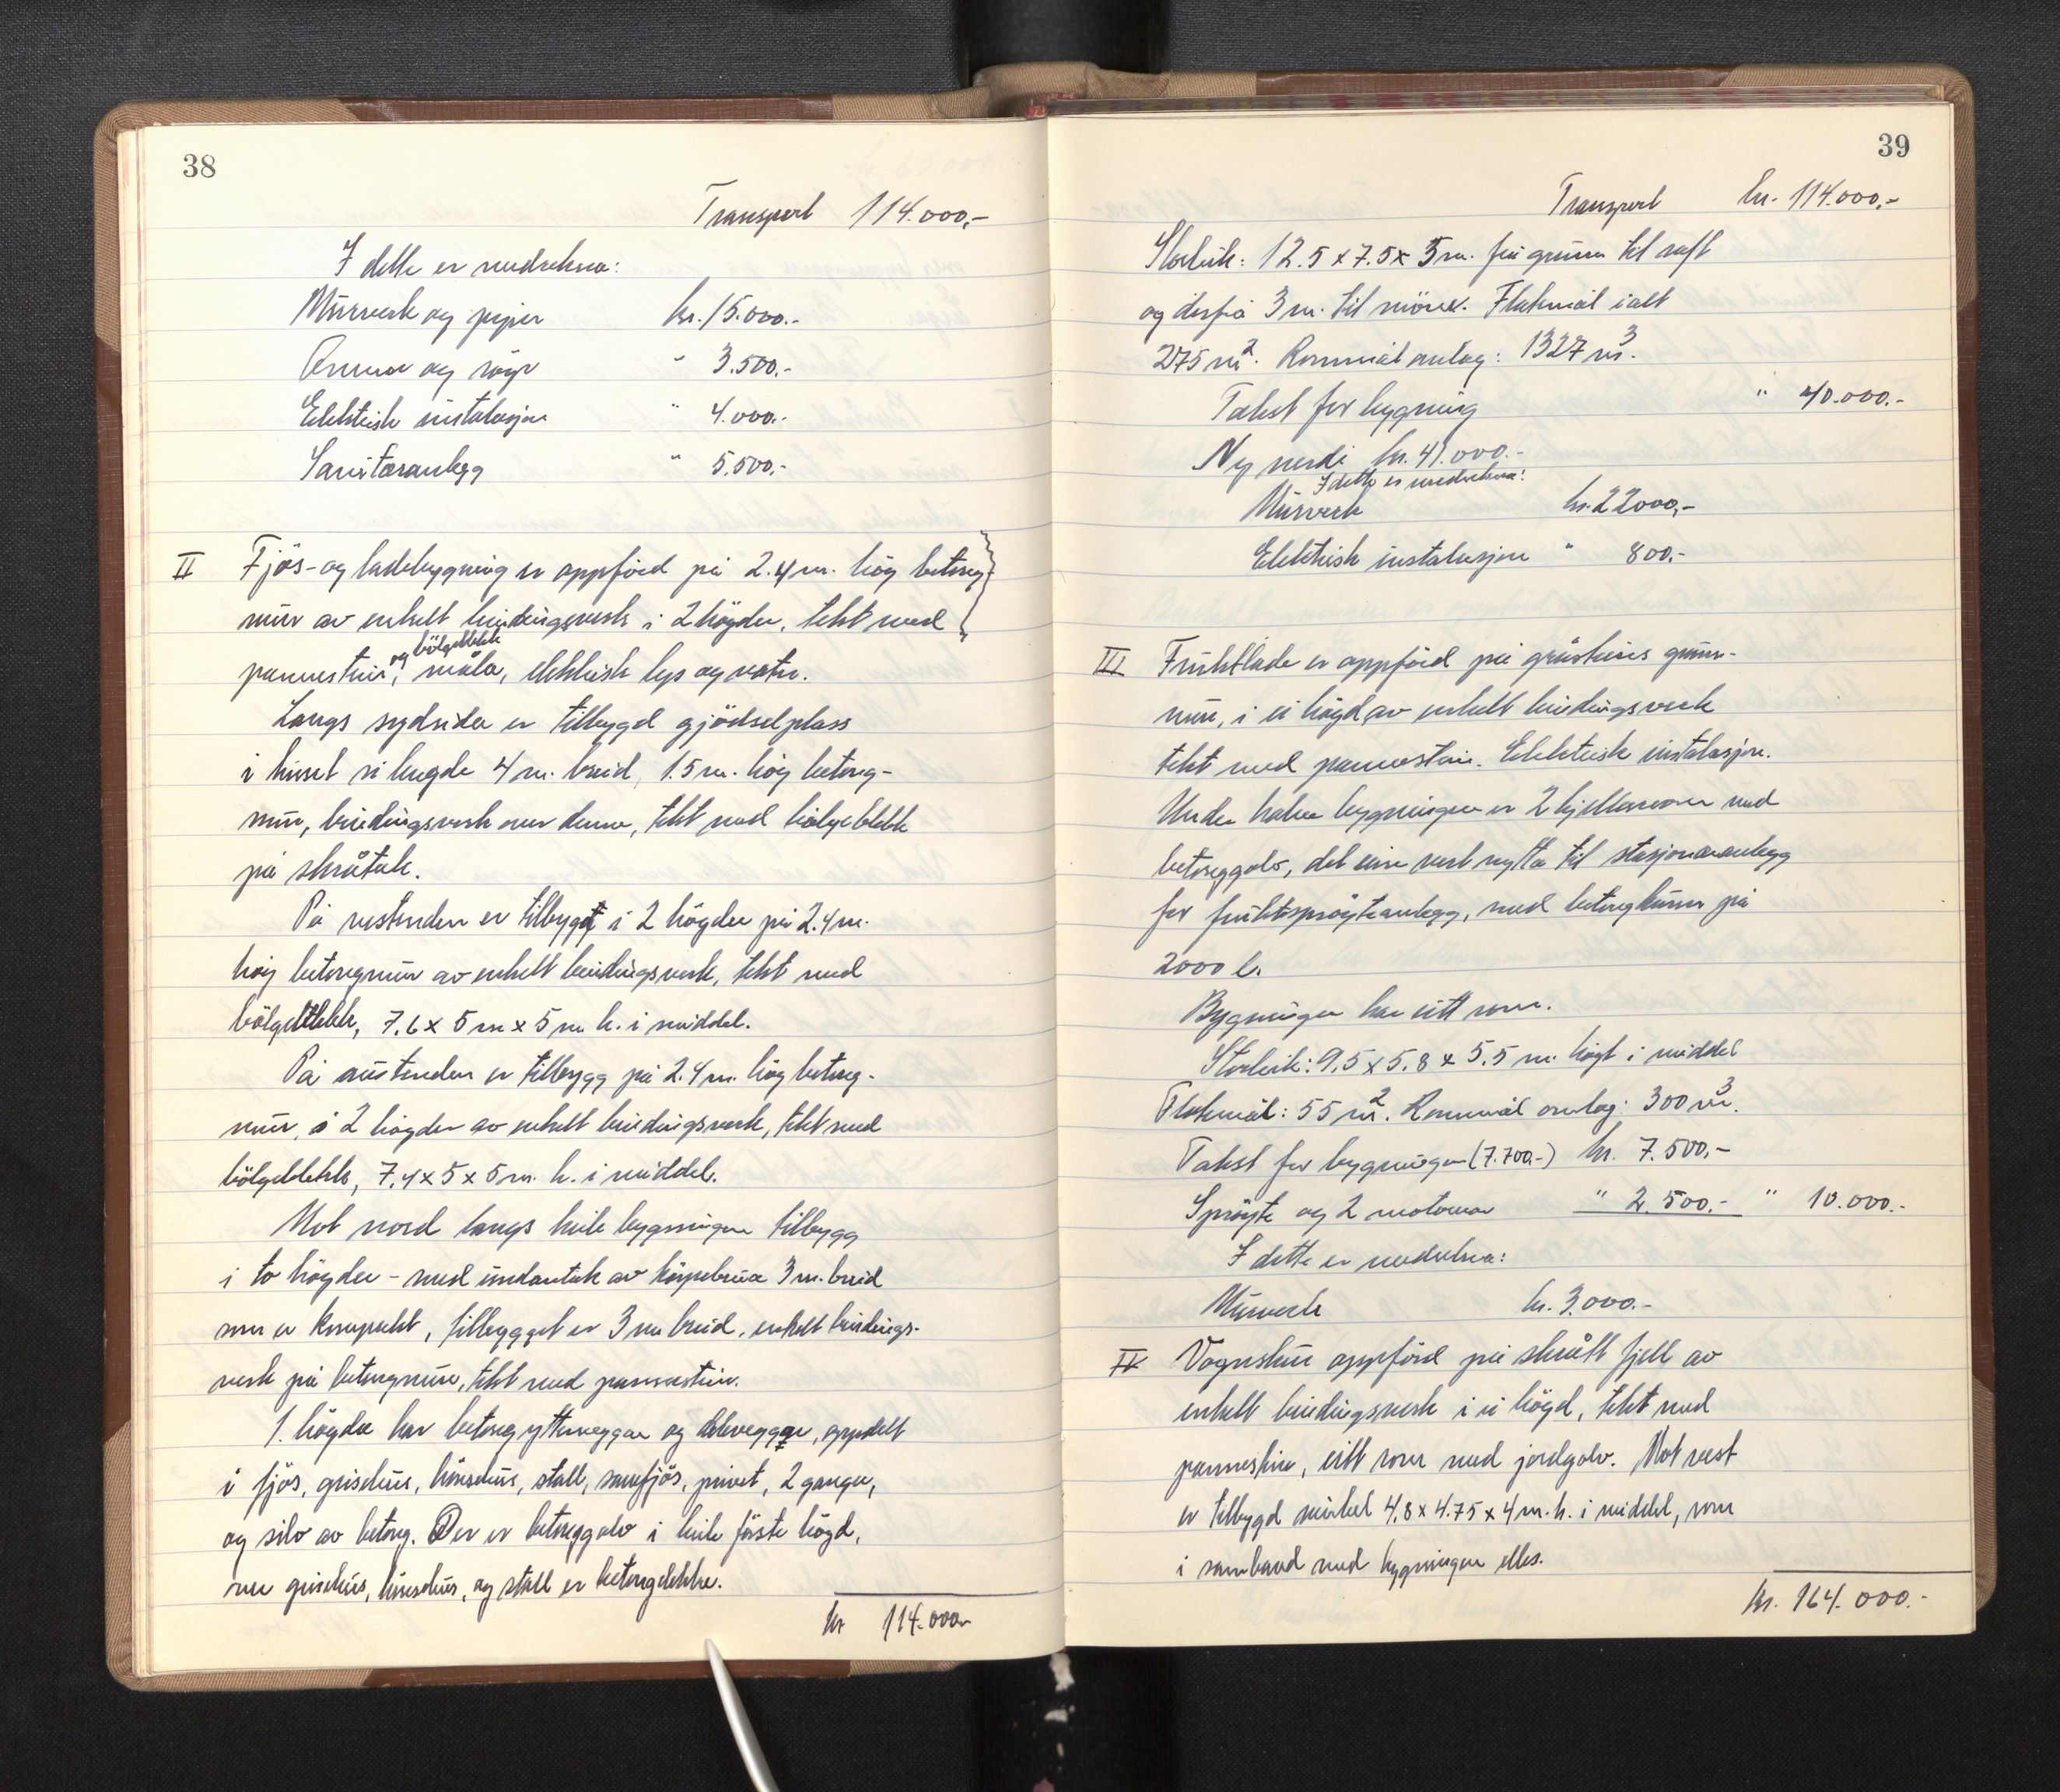 38
Transport 114.000,-
I dette er medrekna:
Murverk og piper kr. 15.000.-
Omnar og røyr " 3.500.-
Elektrisk instalasjon " 4.000.-
Sanitæranlegg " 5.500.-
II Fjös- og ladebygning er oppförd på 2.4 m. hög betong-
mur av enkelt bindingsverk i 2 högder, tekt med
pannestein, og bölgeblekk måla, elektrisk lys og vatn.
Langs sydsida er tilbygd gjödselplass
i huset si lengde 4 m. breid, 1.5 m. hög betong-
mur, bindingsverk over denne, tekt med bölgeblekk
på skråtak.
På vestenden er tilbygt i 2 högder på 2.4 m.
hög betongmur av enkelt bindingsverk, tekt med
bölgeblekk, 7.6 x 5 m x 5 m h. i middel.
På austenden er tilbygg på 2.4 m. hög betong-
mur, i 2 högder av enkelt bindingsverk, tekt med
bölgeblekk, 7.4 x 5 x 5 m. h. i middel.
Mot nord langs heile bygningen tilbygg
i to högder - med undantak av köyrebrua 3 m. breid
som er innpekt, tilbygget er 3 m breid, enkelt bindings-
verk på betongmur, tekt med pannestein.
1. högda har betong yttervegger og delevegger, oppdelt
i fjös, grisehus, hönsehus, stall, sauefjös, privet, 2 ganger,
og silo av betong. Der er betonggolv i heile förste högd,
over grisehus, hönsehus, og stall er betongdekke.
kr 114.000.-
39
Transport kr. 114.000,-
Storleik: 12.5 x 7.5 x 5 m. frå grunn til raft
og derfrå 3 m. til möne. Flatemål ialt
275 m². Rommål omlag: 1327 m³.
Takst for bygning " 40.000.-
Ny verdi kr. 41.000.-
I dette er medrekna:
Murverk kr. 22000,-
Elektrisk instalasjon " 800.-
III Fruktlade er oppförd på gråsteins grunn-
mur, i ei högd av enkelt bindingsverk
tekt med pannestein. Elektrisk instalasjon.
Under halve bygningen er 2 kjellarrom med
betonggolv, det eine vert nytta til stasjonæranlegg
for fruktsprøyteanlegg, med betongkum på
2000 l.
Bygningen har eitt rom.
Storleik: 9.5 x 5.8 x 5.5 m. högt i middel
Flatemål: 55 m². Rommål omlag: 300 m³.
Takst for bygningen (7.700.-) kr. 7.500,-
Sprøyte og 2 motorar " 2.500.- " 10.000.-
I dette er medrekna:
Murverk kr. 3.000.-
IV Vognskur oppförd på skrått fjell av
enkelt bindingsverk i ei högd, tekt med
pannestein, eitt rom med jordgolv. Mot vest
er tilbygd vinkel 4.8 x 4.75 x 4 m. h. i middel, som
i samband med bygningen elles.
kr. 164.000.-